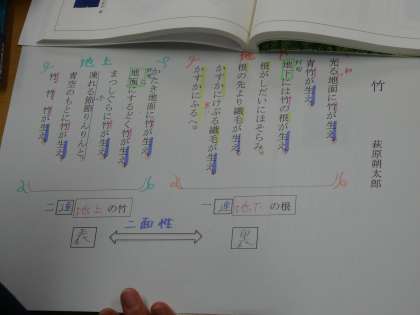 竹
萩原朔太郎
光る地面に竹が生え、
青竹が生え、
地下には竹の根が生え、
根がしだいにほそらみ、
根の先より繊毛が生え、
かすかにけぶる繊毛が生え、
かすかにふるへ。
かたき地面に竹が生え、
地面にするどく竹が生え、
まつしぐらに竹が生え、
凍れる節節りんりんと、
青空のもとに竹が生え、
竹、竹、竹が生え。
地上
一連 地下の根
裏
二面性
二連 地上の竹
表